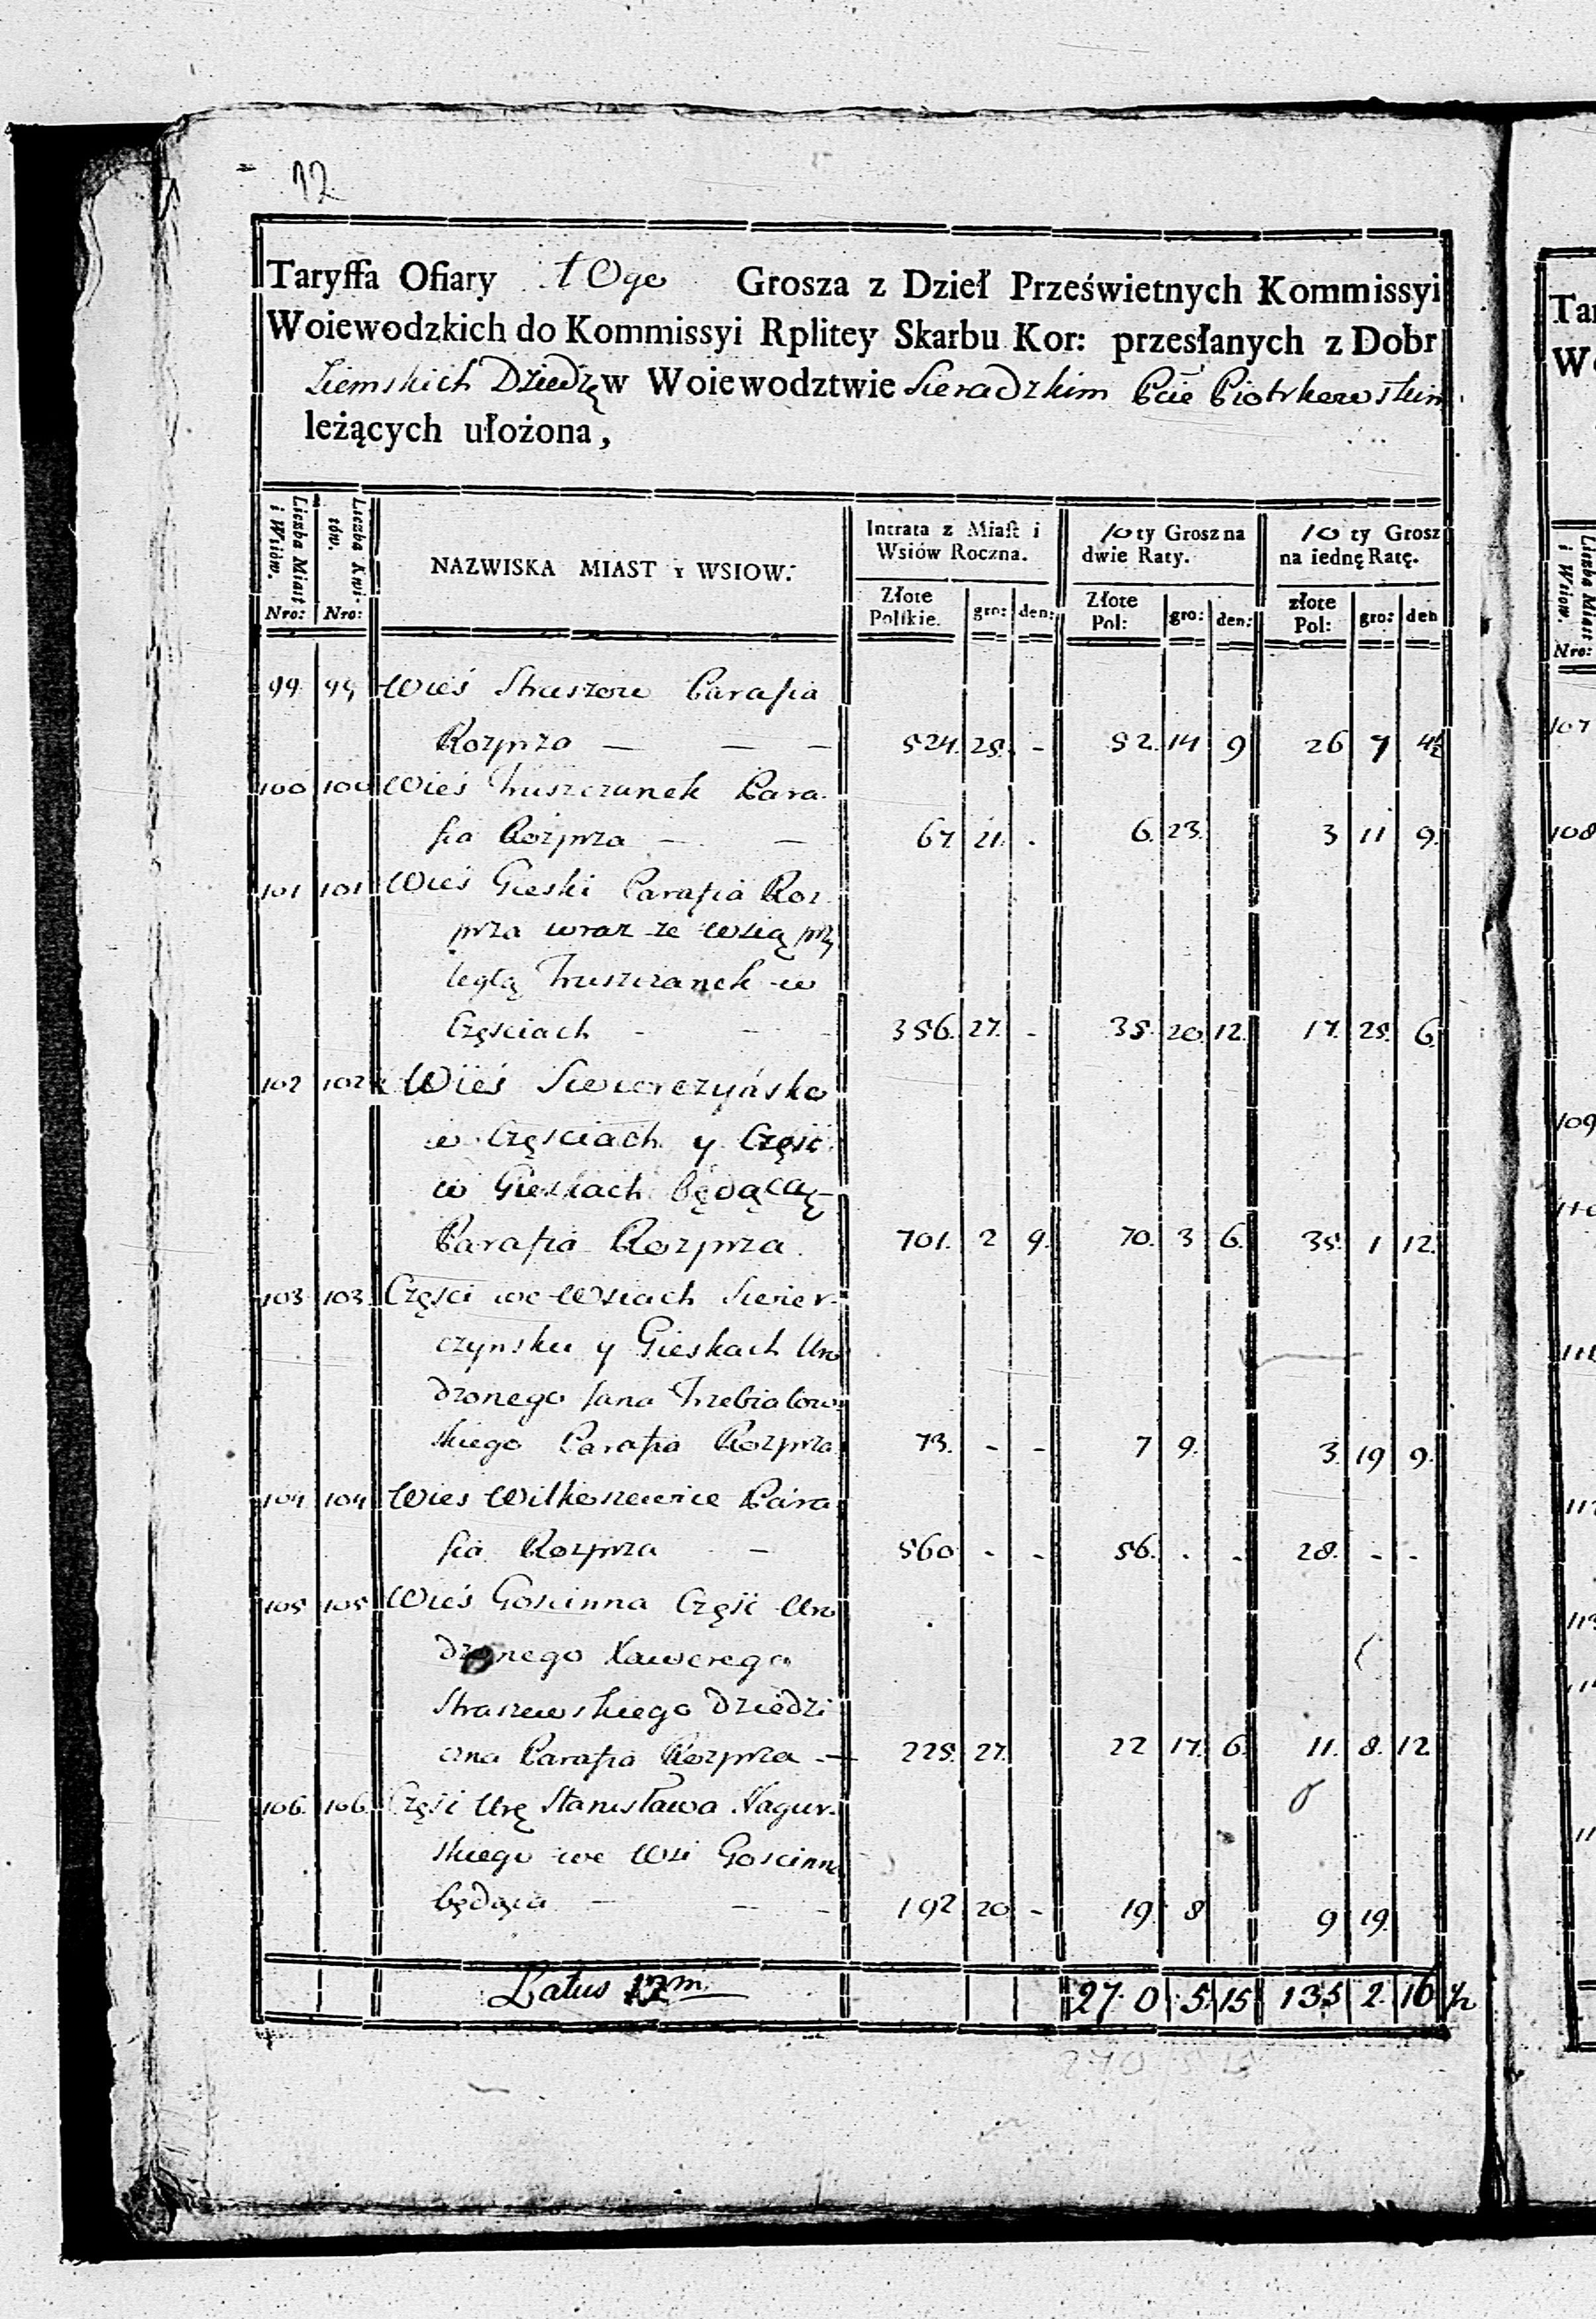 12
Taryffa Ofiary 10go Grosza z Dzieł Prześwietnych Kommissyi
Woiewodzkich do Kommissyi Rplitey Skarbu Kor: przesłanych z Dobr
Ziemskich Dziedzę w Woiewodztwie Sieradzkim Pcie Piotrkowskim
leżących ułożona,
Liczba Miast i Wsiów. Nro: Liczba Kwitów. Nro: NAZWISKA MIAST y WSIOW. Intrata z Miast i Wsiów Roczna. 10ty Grosz na dwie Raty. 10ty Grosz na iednę Ratę.
Złote Polskie. gro: den: Złote Pol: gro: den: złote Pol: gro: den
99 99 Wieś Straszow Parafia
Rozprza — — — 524. 25. - 52. 14 9 26 7 4½
100 100 Wieś Truszczanek Para-
fia Rozprza — — 67. 21. . 6. 23. 3 11 9.
101 101 Wieś Gieski Parafia Roz-
prza wraz ze wsią prz
ległą Truszczanek w
Częsciach - - - 356. 27. - 35. 20. 12. 17. 25. 6.
102 102 Wieś Swierczyńsko
w Częsciach y Część
w Gieskach będącą
Parafia Rozprza. 701. 2 9. 70. 3 6. 35. 1 12.
103 103 Części we Wsiach Swier-
czynsku y Gieskach Uro
dzonego Jana Trzebiatow-
skiego Parafia Rozprza 73. - - 7 9. 3. 19 9.
104 104 Wies Wilkoszewice Para
fia Rozprza — 560 - - 56. . - 28. - -
105 105 Wieś Goscinna Część Uro
dzonego Xawerego
Straszewskiego Dziedzi
czna Parafia Rozprza — 225. 27. 22 17. 6. 11. 8. 12
106. 106. Część Urę Stanisława Nagur-
skiego we Wsi Goscinna
będąca — — - 192 20 - 19. 8 9 19.
Latus 12m. 270 5. 15 135 2. 16 ½
270 5 15